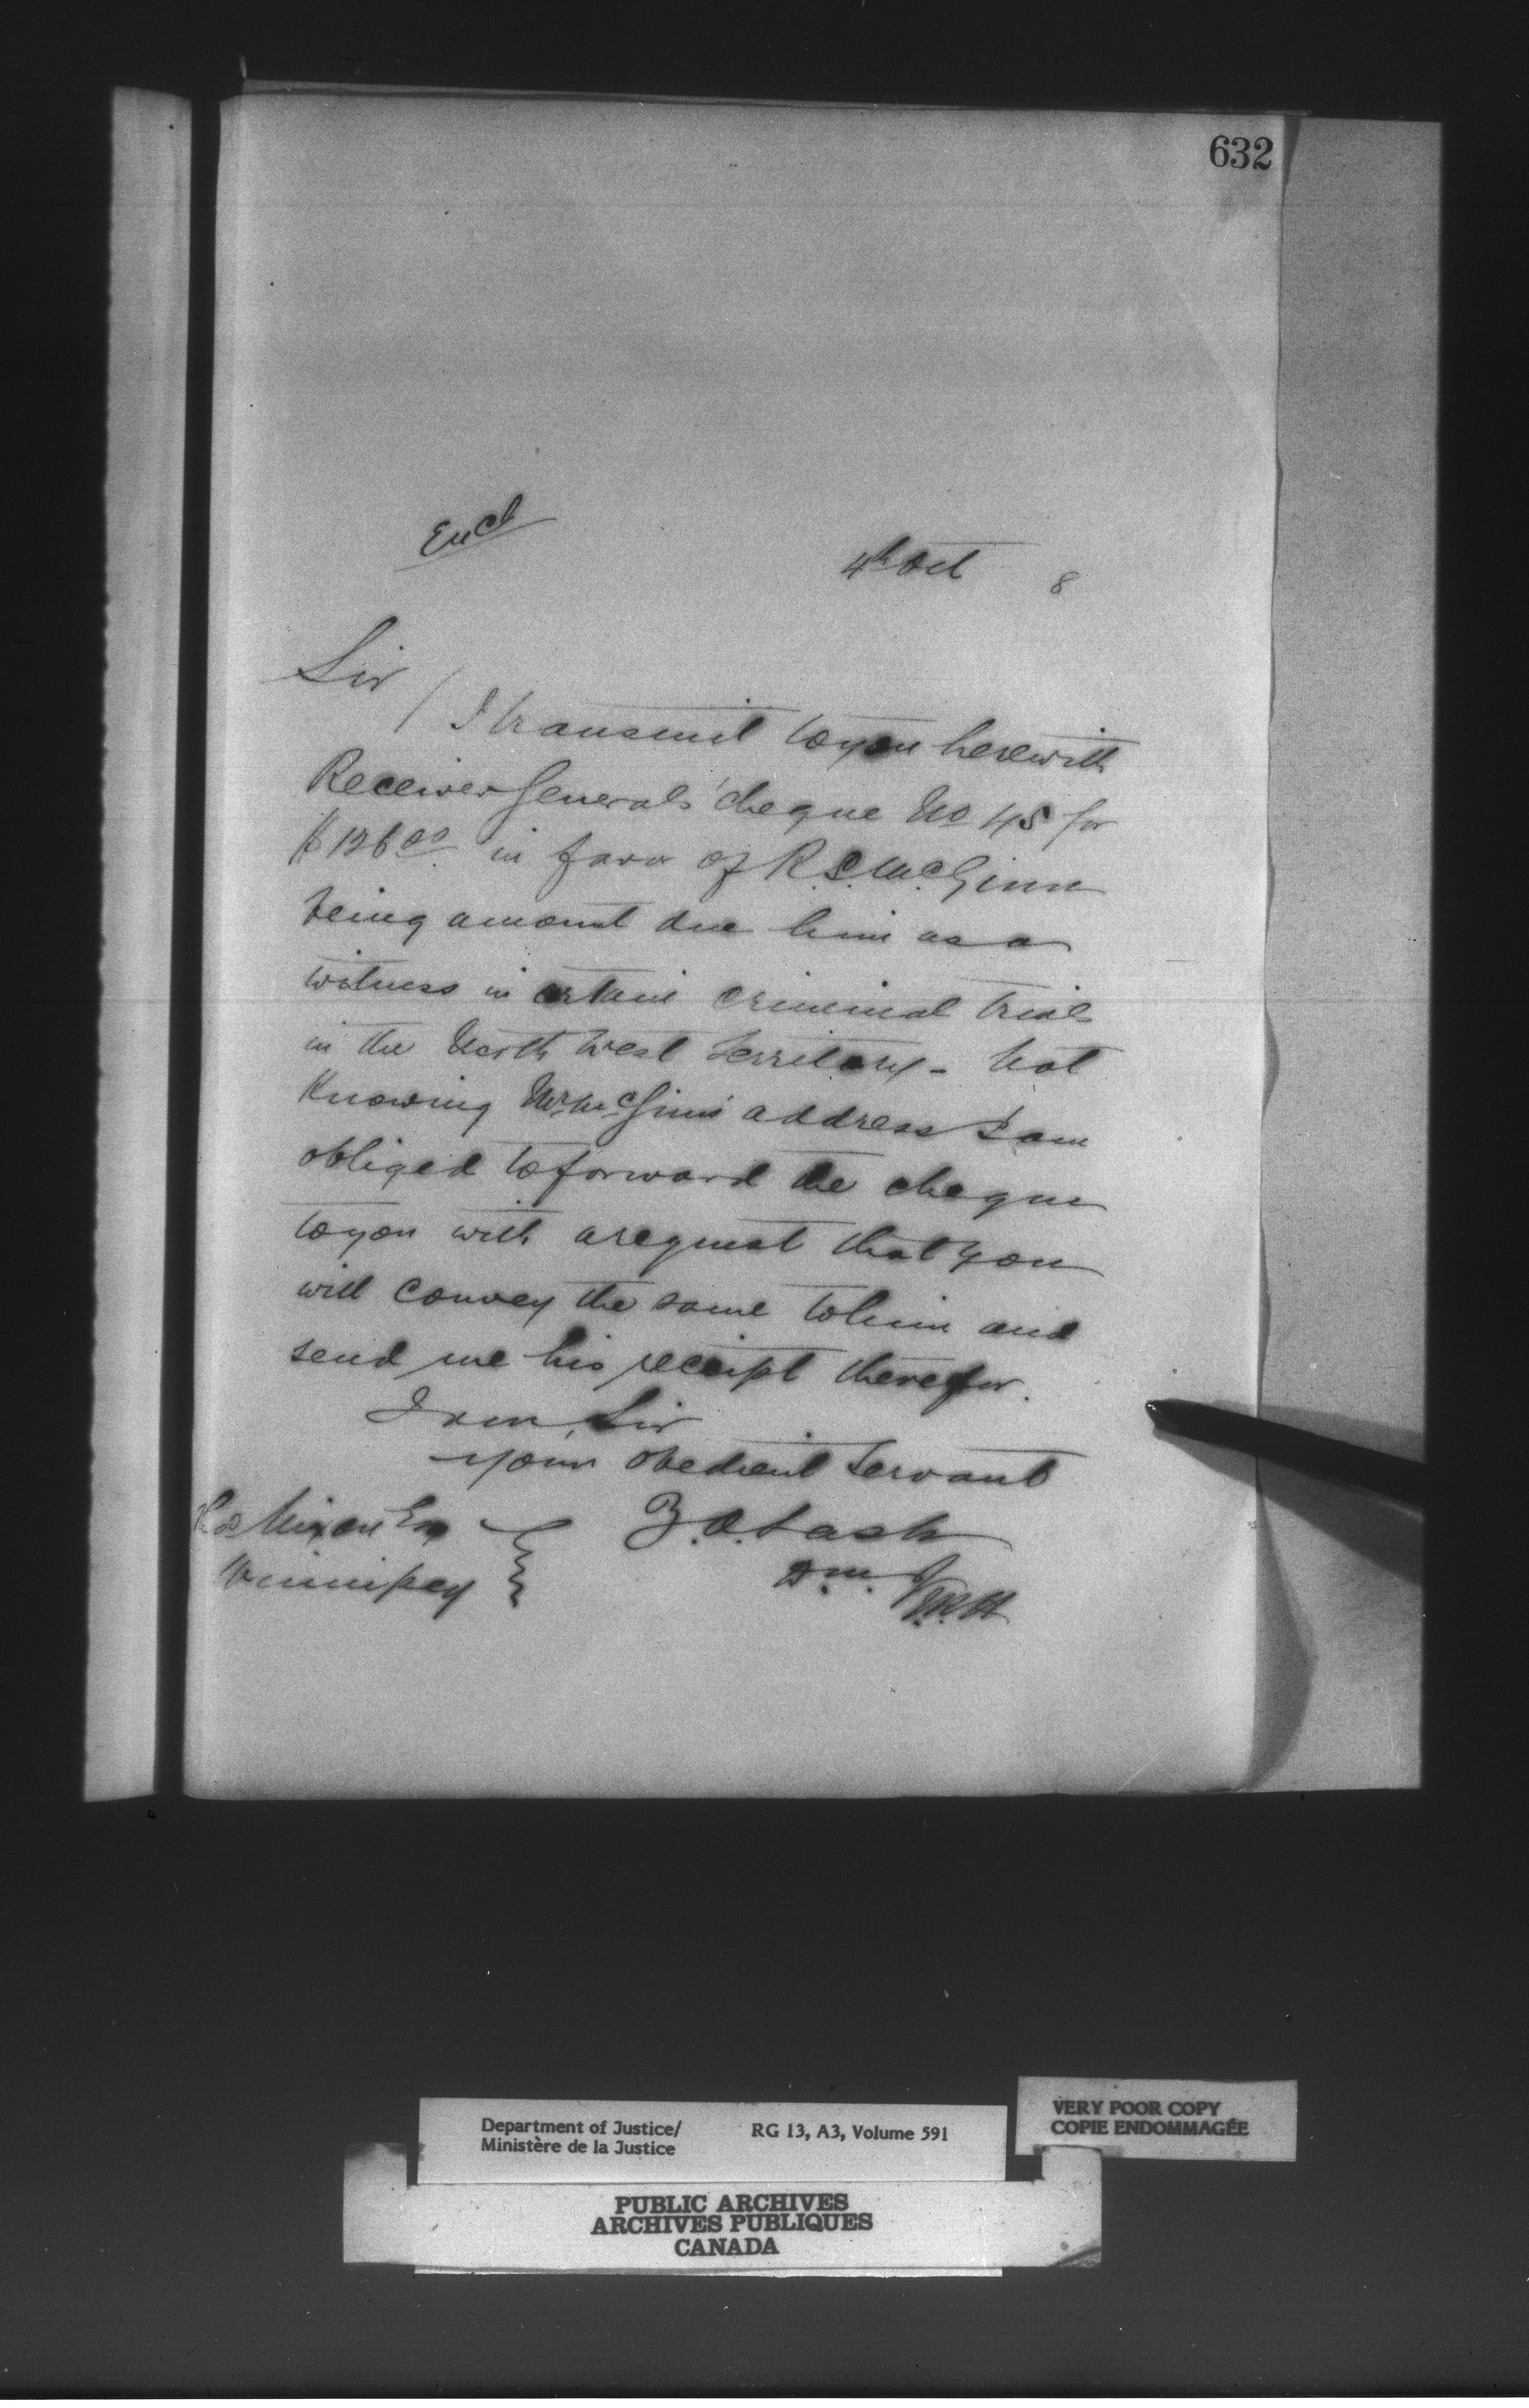 632
Encl
4th Oct 8
Sir /
I transmit to you herewith
Receiver Generals' cheque No 45 for
$126.00 in favor of R. C. McGinn
being amount due him as a
witness in certain criminal trials
in the North West Territory - Not
Knowing Mr McGinns address I am
obliged to forward the cheque
to you with a request that you
will convey the same to him and
send me his receipt therefor.
I am, Sir
your obedient Servant
Z. A. Lash
D. M. J
Nixon Esq
Winnipeg
Department of Justice/
Ministère de la Justice
RG 13, A3, Volume 591
VERY POOR COPY
COPIE ENDOMMAGÉE
PUBLIC ARCHIVES
ARCHIVES PUBLIQUES
CANADA